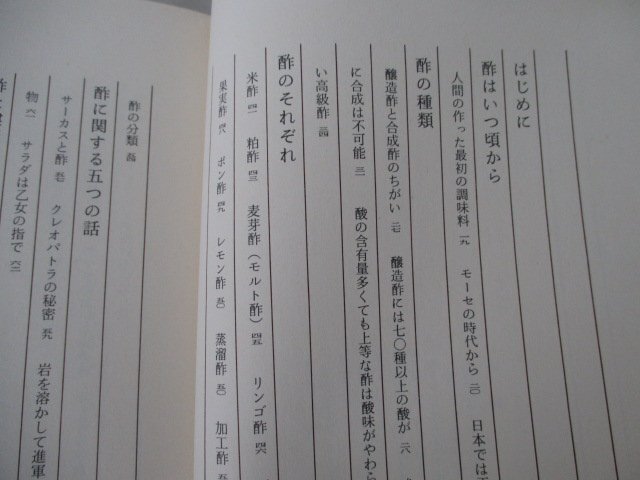 はじめに
酢はいつ頃から
人間の作った最初の調味料 一九 モーセの時代から 二〇 日本では
酢の種類
醸造酢と合成酢のちがい 二七 醸造酢には七〇種以上の酸が 二八
に合成は不可能 三一 酸の含有量多くても上等な酢は酸味がやわら
い高級酢 三四
酢のそれぞれ
米酢 四一 粕酢 四三 麦芽酢(モルト酢) 四五 リンゴ酢 四六
果実酢 四八 ポン酢 四九 レモン酢 五〇 蒸溜酢 五〇 加工酢
酢の分類 五四
酢に関する五つの話
サーカスと酢 五七 クレオパトラの秘密 五九 岩を溶かして進軍
物 六一 サラダは乙女の指で 六二